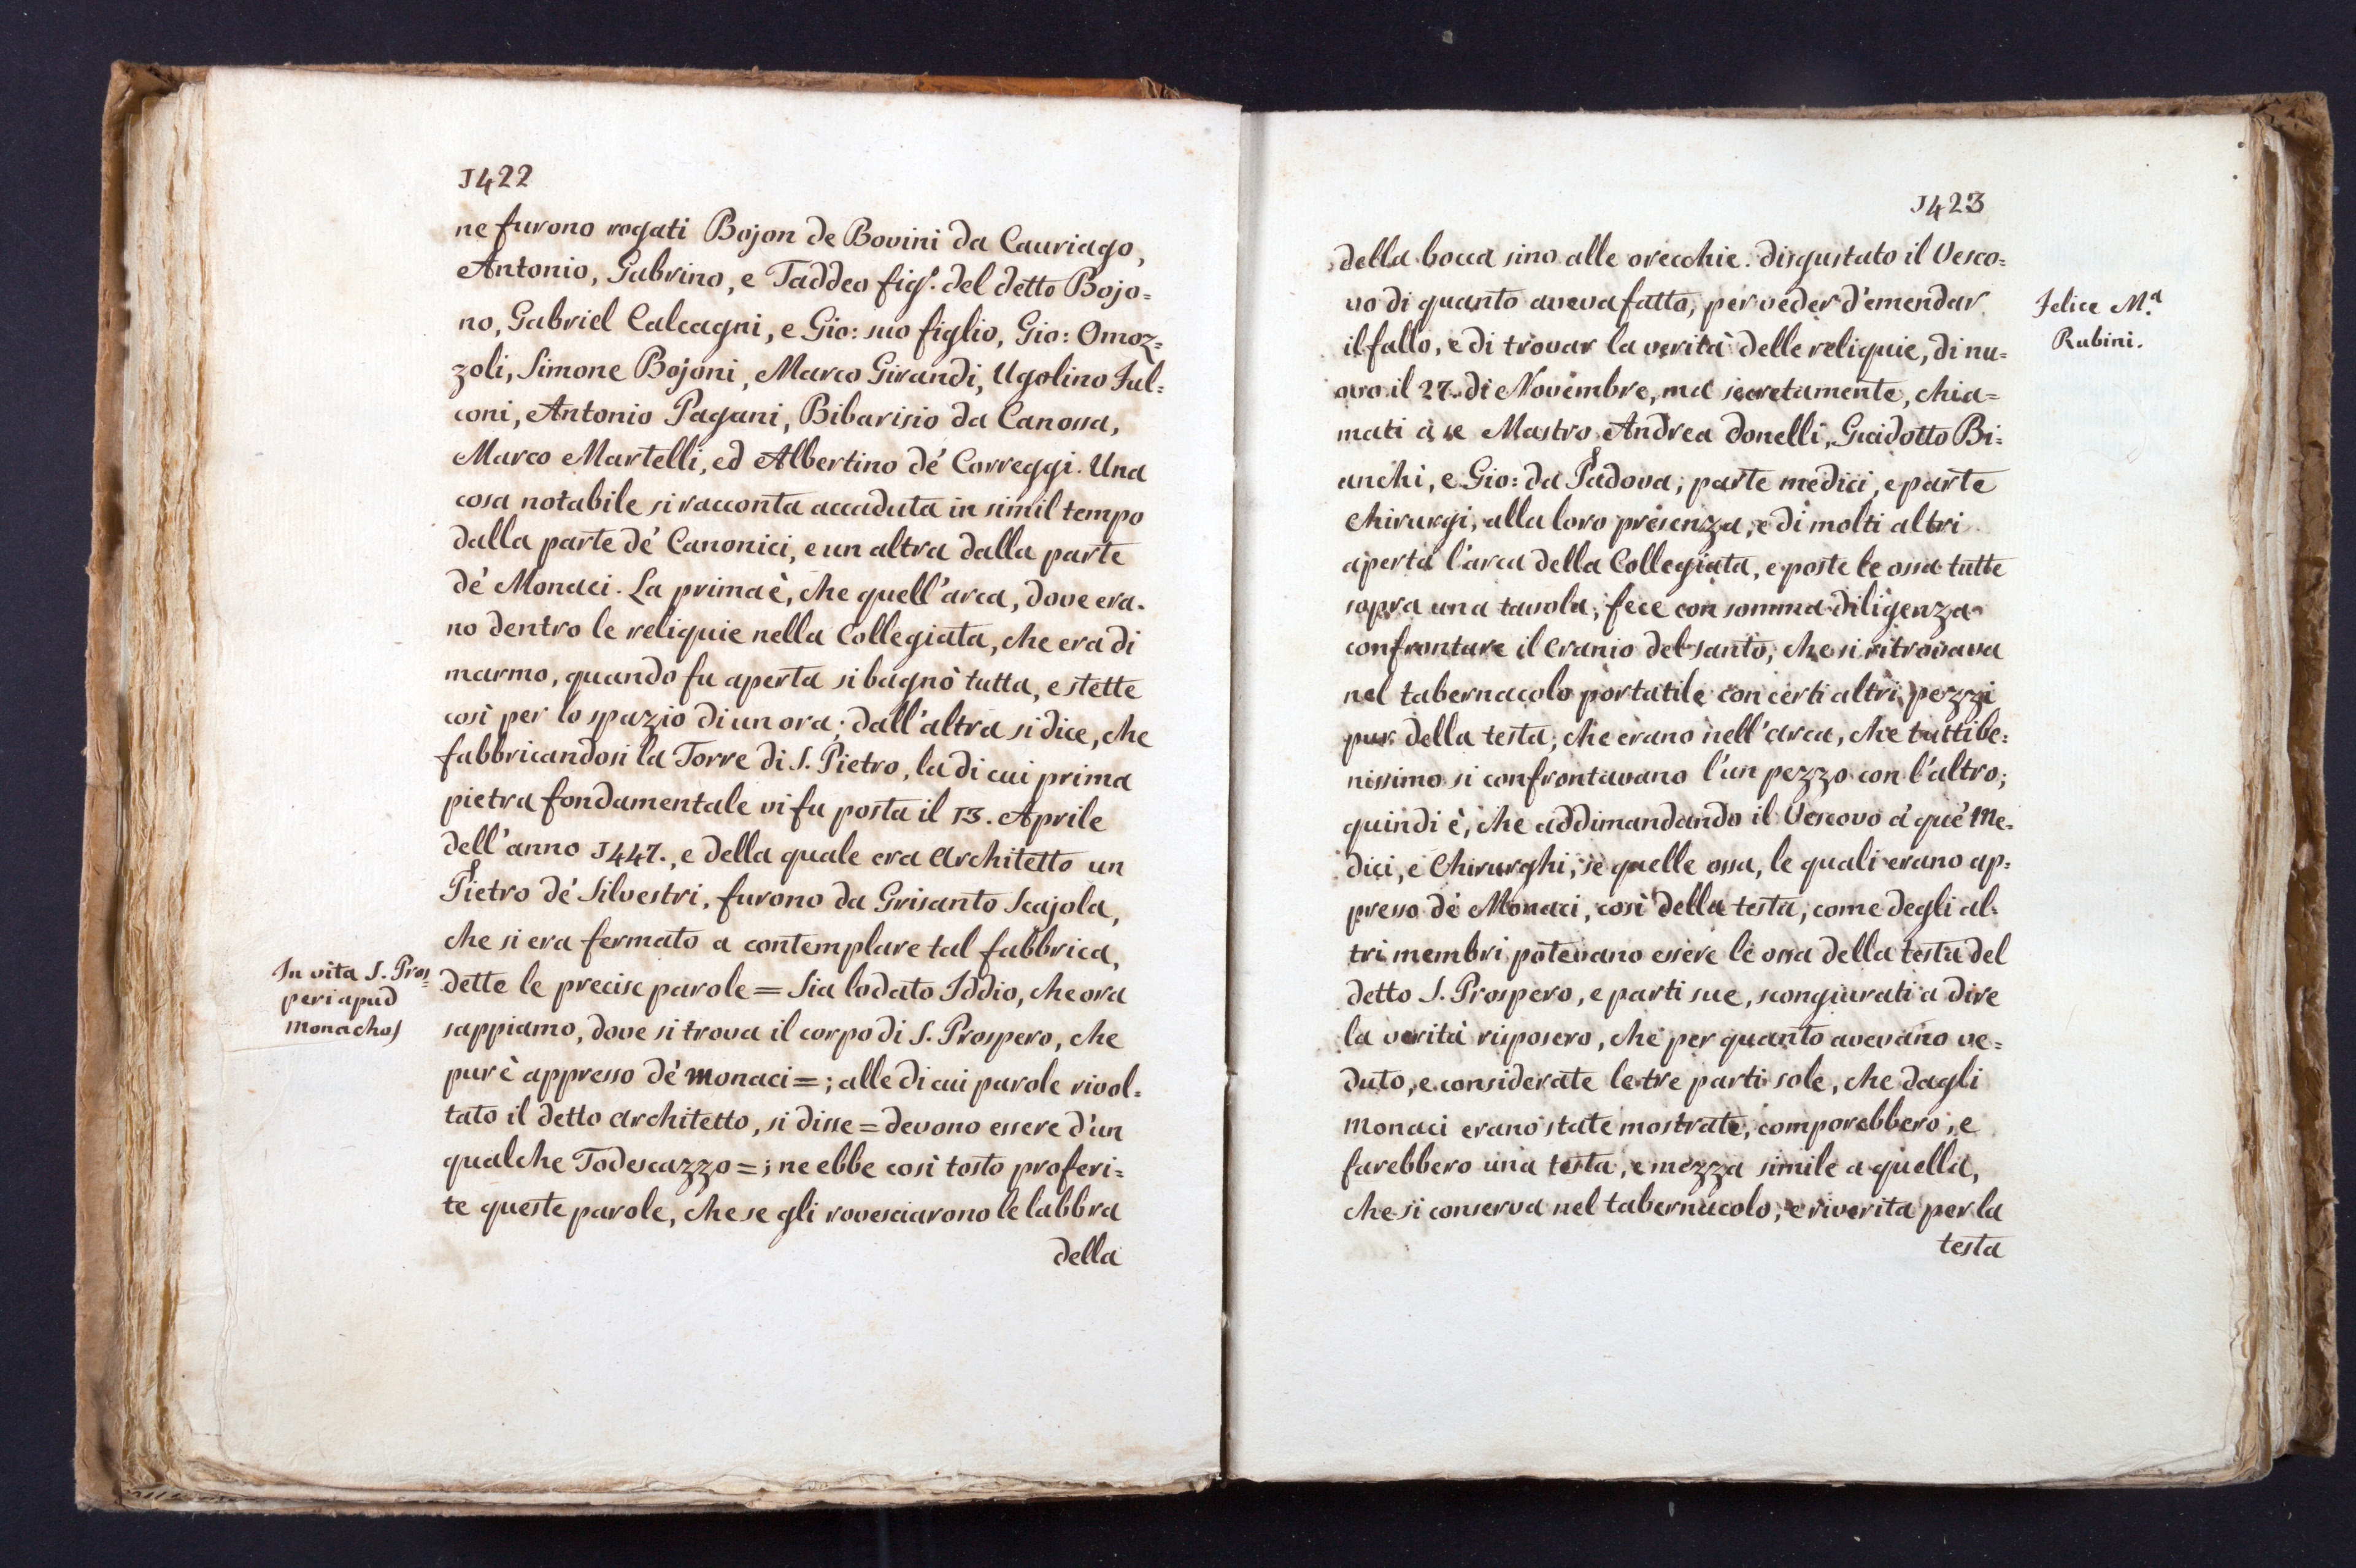 1422
ne furono rogati Bojon de Bovini da Cauriago,
Antonio, Gabrino, e Taddeo figl. del detto Bojo=
no, Gabriel Calcagni, e Gio: suo figlio, Gio: Omoz=
zoli, Simone Bojoni, Marco Girandi, Ugolino Ful=
coni, Antonio Pagani, Bibarisio da Canossa,
Marco Martelli, ed Albertino dé Correggi. Una
cosa notabile si racconta accaduta in simil tempo
dalla parte dé Canonici, e un altra dalla parte
dé Monaci. La prima è, che quell'arca, dove era=
no dentro le reliquie nella Collegiata, che era di
marmo, quando fu aperta si bagnò tutta, e stette
così per lo spazio di un ora; dall'altra si dice, che
fabbricandosi la Torre di S. Pietro, la di cui prima
pietra fondamentale vi fu posta il 13. Aprile
dell'anno 1447., e della quale era Architetto un
Pietro dé Silvestri, furono da Grisanto Scajola,
che si era fermato a contemplare tal fabbrica,
In vita S. Pros=
peri apud
Monachos
dette le precise parole = Sia lodato Iddio, che ora
sappiamo, dove si trova il corpo di S. Prospero, che
pur è appresso dé Monaci =; alle di cui parole rivol=
tato il detto Architetto, si disse = devono essere d'un
qualche Todescazzo =; ne ebbe così tosto proferi=
te queste parole, che se gli rovesciarono le labbra
della
1423
della bocca sino alle orecchie. disgustato il Vesco=
vo di quanto aveva fatto, per veder d'emendar
Felice M.a
Rubini.
il fallo, e di trovar la verità delle reliquie, di nu=
ovo il 27. di Novembre, ma secretamente, chia=
mati à se Mastro Andrea Donelli, Guidotto Bi=
anchi, e Gio: da Padova, parte medici, e parte
Chirurgi, alla loro presenza, e di molti altri
aperta l'arca della Collegiata, e poste le ossa tutte
sopra una tavola, fece con somma diligenza
confrontare il Cranio del santo, che si ritrovava
nel tabernacolo portatile con certi altri pezzi
pur della testa, che erano nell'arca, che tutti be=
nissimo si confrontavano l'un pezzo con l'altro;
quindi è, che addimandando il Vescovo à qué Me=
dici, e Chirurghi, se quelle ossa, le quali erano ap=
presso dé Monaci, così della testa, come degli al=
tri membri potevano essere le ossa della testa del
detto S. Prospero, e parti sue, scongiurati a dire
la verità risposero, che per quanto avevano ve=
duto, e considerate le tre parti sole, che dagli
Monaci erano state mostrate, comporebbero, e
farebbero una testa, e mezza simile a quella,
che si conserva nel tabernacolo, e riverita per la
testa